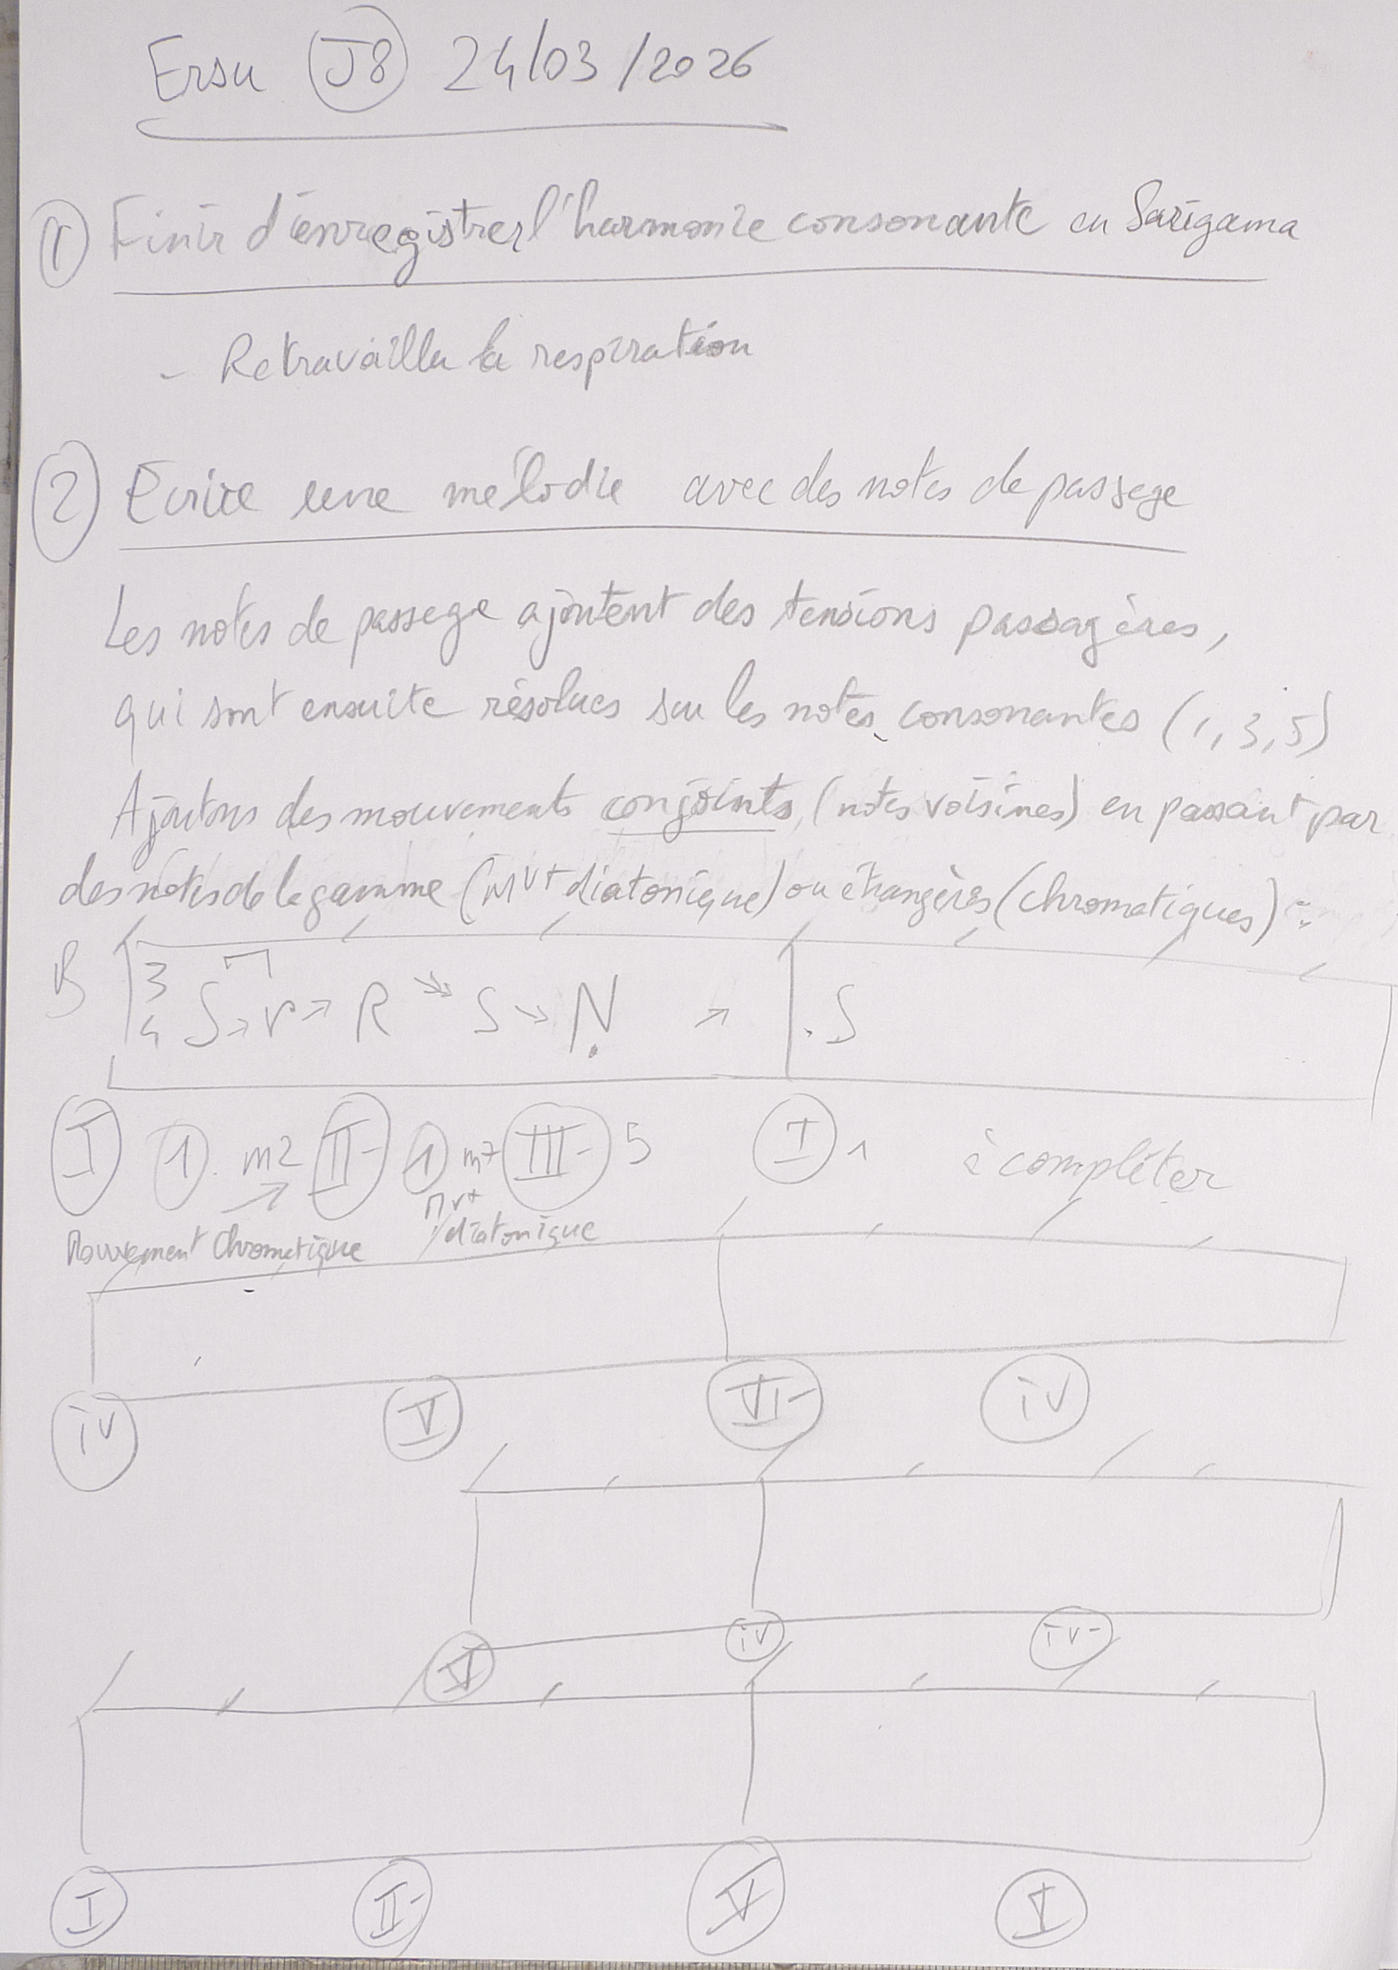 Ersu J8 24/03/2026
1 Finir d'enregistrer l'harmonie consonante en Sarigama
- Retravailler la respiration
2 Ecrire une mélodie avec des notes de passage
Les notes de passage ajoutent des tensions passagères,
qui sont ensuite résolues sur les notes consonantes (1, 3, 5)
Ajoutons des mouvements conjoints, (notes voisines) en passant par
des notes de la gamme (mvt diatonique) ou étrangères (chromatiques) :
3 4 S → r → R → S → Ṇ → . S
I 1 . m2 → II- 1 m7 III- 5 I 1 à compléter
Mouvement Chromatique Mvt diatonique
iv V VI- iv
V iv iv-
I II- V I